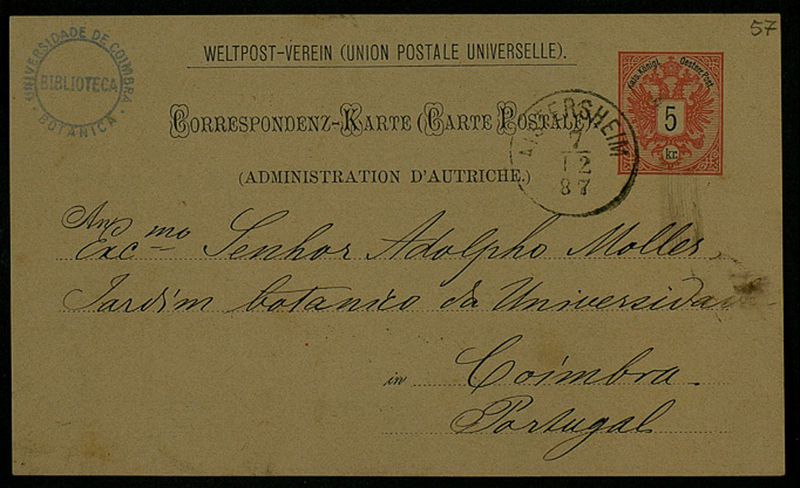 57
UNIVERSIDADE DE COIMBRA
BIBLIOTECA
BOTANICA
WELTPOST-VEREIN (UNION POSTALE UNIVERSELLE).
Kais. Königl. Oesterr. Post.
5
kr.
CORRESPONDENZ-KARTE (CARTE POSTALE)
AISTERSHEIM
7
12
87
(ADMINISTRATION D'AUTRICHE.)
An
Exc.mo Senhor Adolpho Moller
Jardim botanico da Universidade
in Coimbra.
Portugal